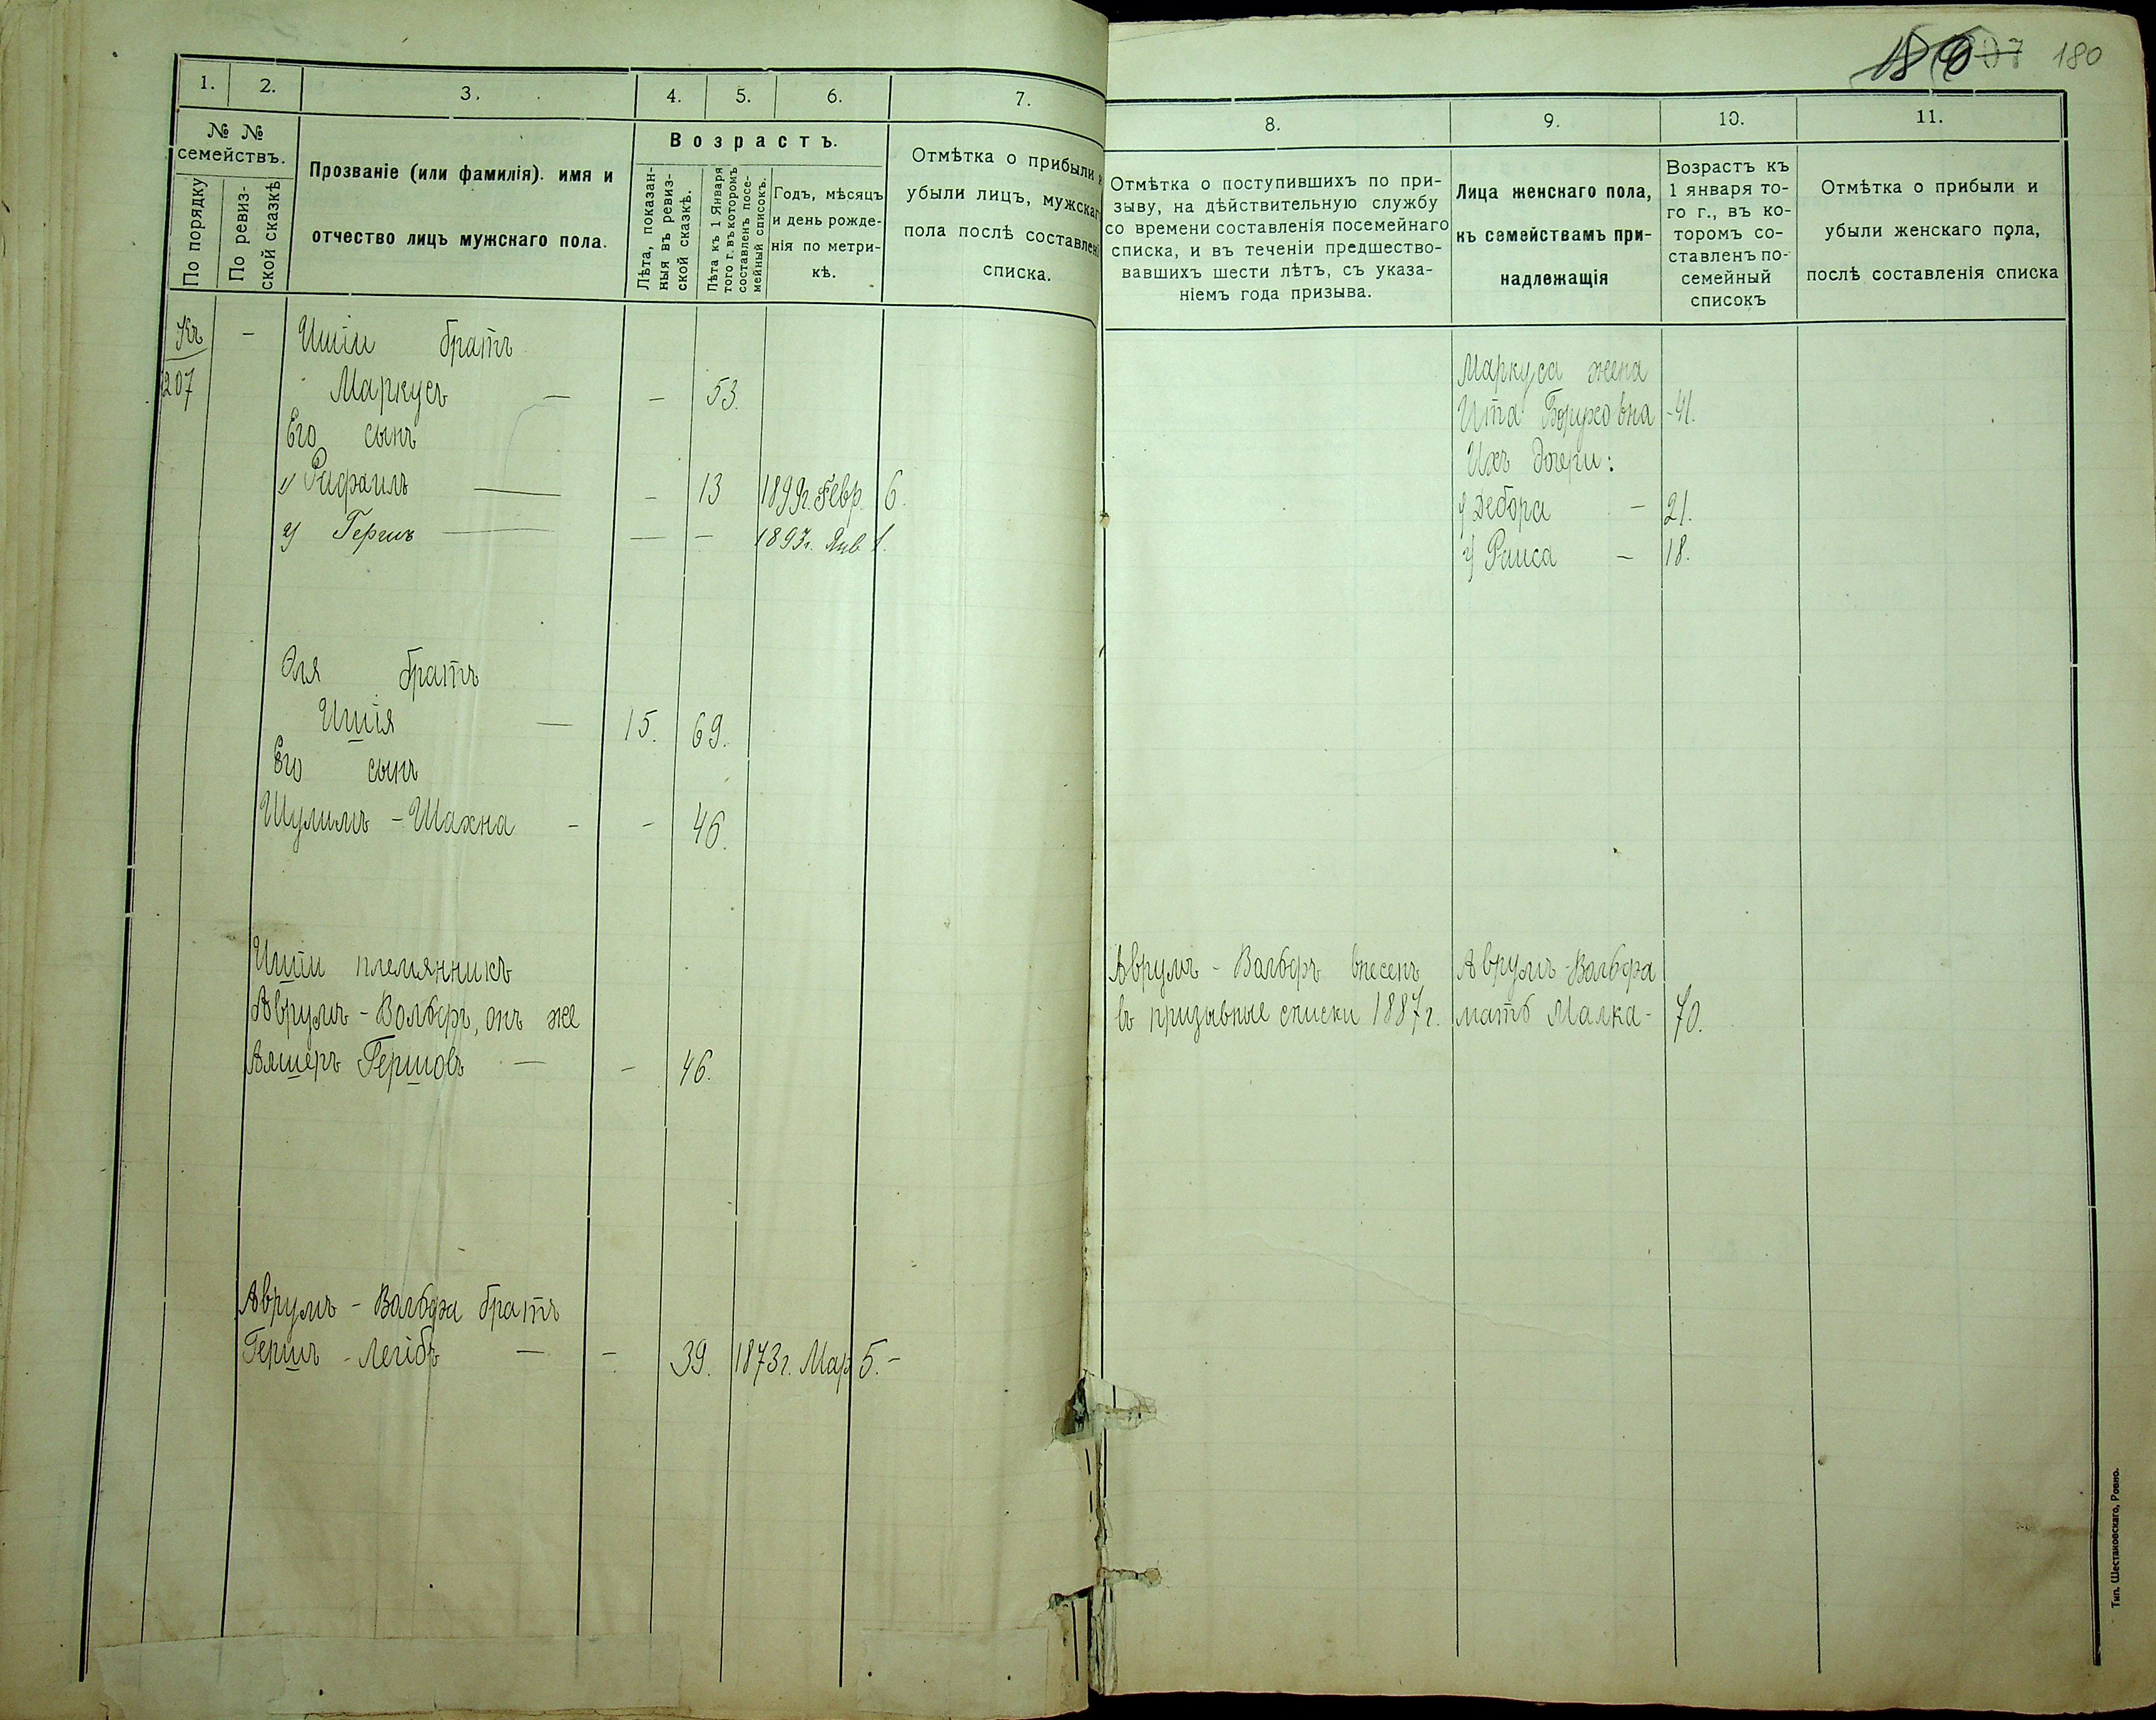 180
1. 2. 3. 4. 5. 6. 7.
№ № семействъ.
По порядку
По ревиз-
ской сказкѣ
Прозваніе (или фамилія). имя и
отчество лицъ мужскаго пола.
Возрастъ.
Лѣта, показан-
ныя въ ревиз-
ской сказкѣ.
Лѣта къ 1 Января
того г. въ которомъ
составленъ посе-
мейный списокъ.
Годъ, мѣсяцъ
и день рожде-
нія по метри-
кѣ.
Отмѣтка о прибыли и
убыли лицъ, мужскаго
пола послѣ составлені
списка.
Къ - Ишіи братъ
207 Маркусъ — - 53.
Его сынъ
1) Рафаилъ — - 13 1899г. Февр. 6.
2) Гершъ — — - 1893г. Янв 1.
Эля братъ
Ишія — 15. 69.
Его сынъ
Шулимъ - Шахна - - 46.
Ишіи племянникъ
Аврумъ - Вольфъ, онъ же
Аншеръ Гершовъ — - 46.
Аврумъ - Вольфа братъ
Гершъ - Лейбъ — - 39. 1873г. Мар 5. -
8. 9. 10. 11.
Отмѣтка о поступившихъ по при-
зыву, на дѣйствительную службу
со времени составленія посемейнаго
списка, и въ теченіи предшество-
вавшихъ шести лѣтъ, съ указа-
ніемъ года призыва.
Лица женскаго пола,
къ семействамъ при-
надлежащія
Возрастъ къ
1 января то-
го г., въ ко-
торомъ со-
ставленъ по-
семейный
списокъ
Отмѣтка о прибыли и
убыли женскаго пола,
послѣ составленія списка
Маркуса жена
Ита Боруховна - 41.
Ихъ дочери:
1) Дебора - 21.
2) Раиса - 18.
Аврумъ - Вольфъ внесенъ
въ призывные списки 1887г.
Аврумъ - Вольфа
мать Малка - 70.
Тип. Шестаковскаго, Ровно.